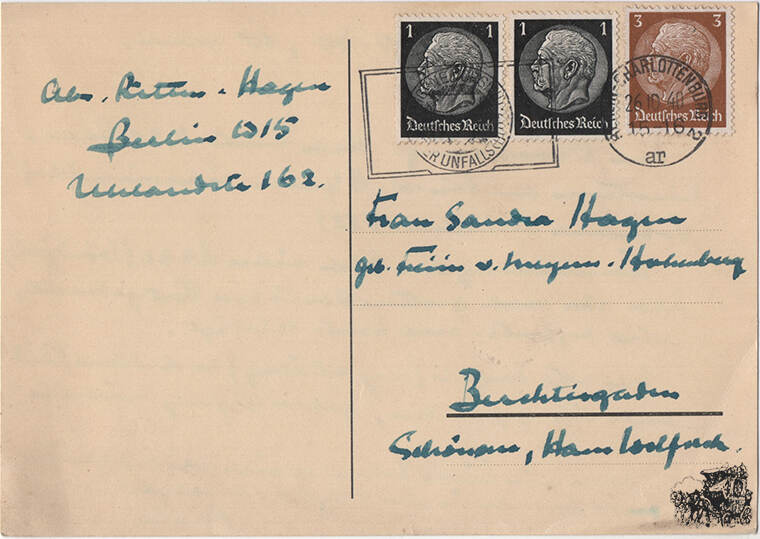 Abs. Ritter - Hagen
Berlin W15
Uhlandstr 162.
1
1
3
Deutsches Reich
Deutsches Reich
Deutsches Reich
CHARLOTTENBURG 2
26.10.40
15-16
ar
ER UNFALLSG
Frau Sandra Hagen
geb. Freiin v. Hohenberg
Berchtesgaden
Schönau, Haus